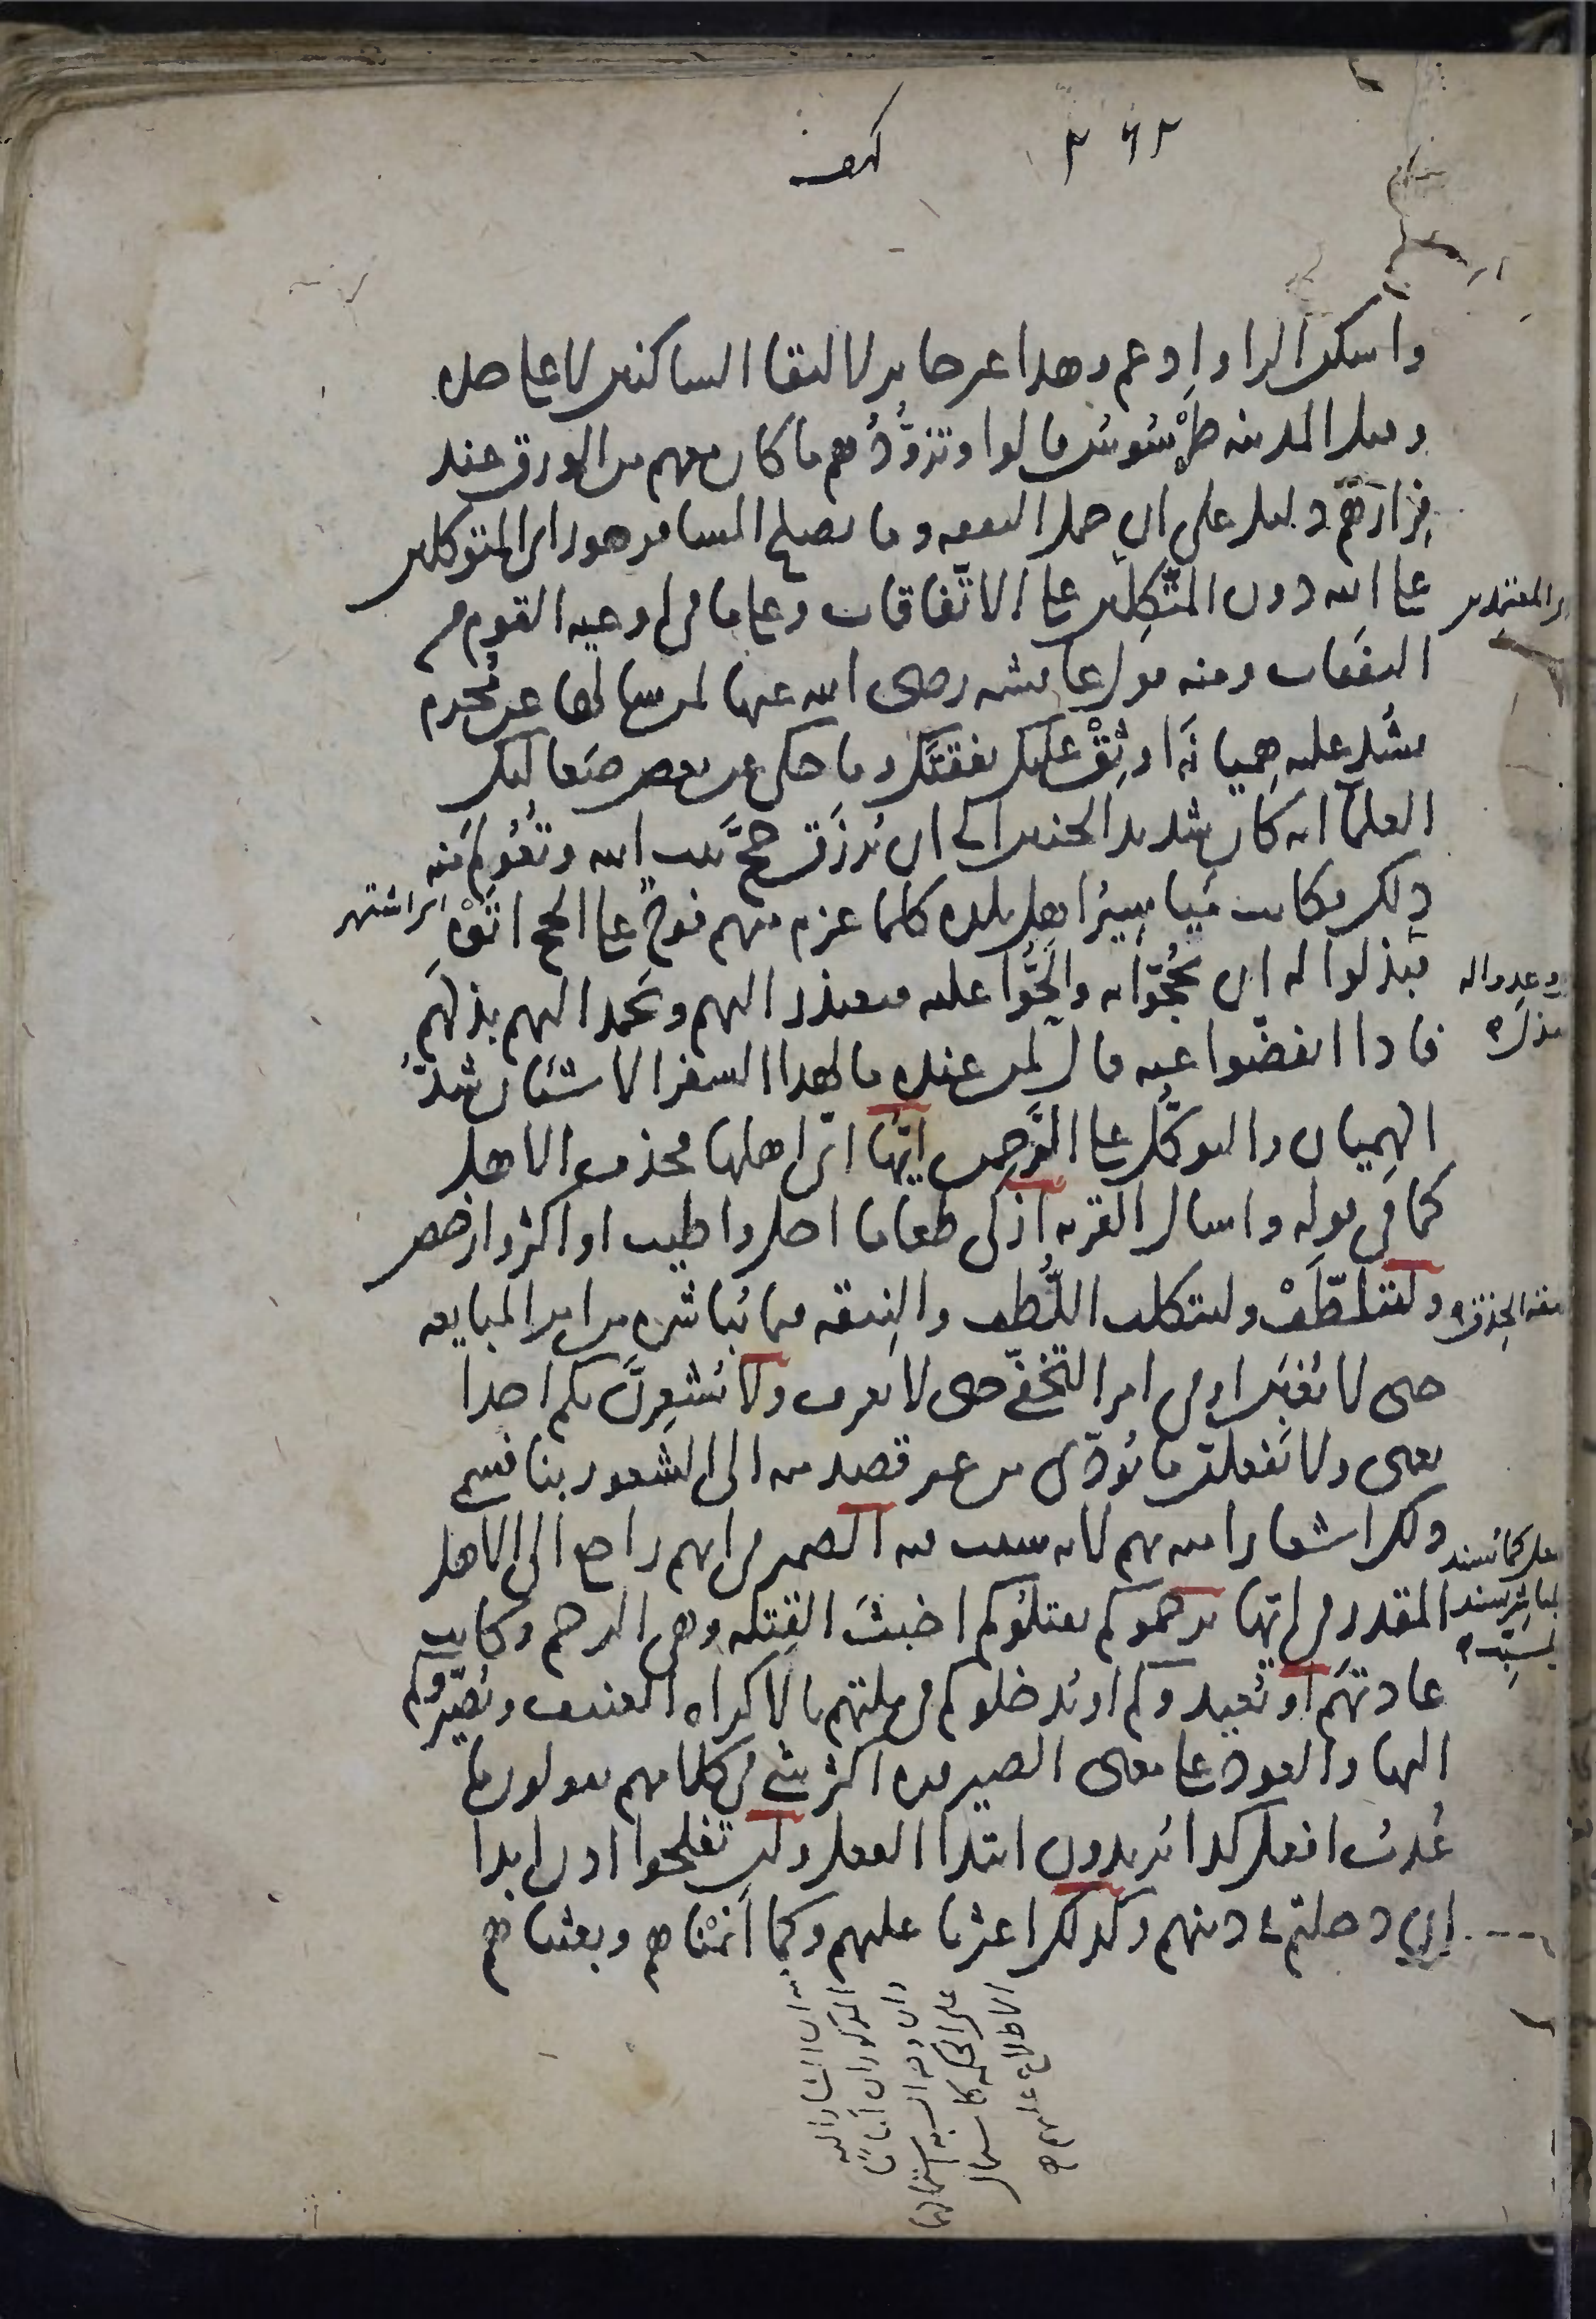 ٢٦٢
كهف
واسكن الرا وادغم وهذا غير جايز لالتقا الساكنين لا على حده
وقيل المدينه طرسوس قالوا وتزوّدهم ما كان معهم من الورق عند
فرارهم دليل على ان حمل النفقه وما يصلح المسافر هو راى المتوكلين
على الله دون المتّكلين على الاتّفاقات وعلى ما فى اوعيه القوم من
النفقات ومنه قول عايشه رضى الله عنها لمن سالها عن مُحرم
يشُد عليه هِميانَه اوثِقْ عليك نفقتَك وما حكى عن بعض صَعاليك
العلمآ انه كان شديد الحنين الى ان يُرزَق حجَّ بيت الله وتُعُولِمَ منه
ذلك فكانت مَياسِيرُ اهل بلده كلما عزم منهم فوجٌ على الحج اتَوْه
فبذلوا له ان يحُجّوا به والَحُّوا عليه فيعتذر اليهم ويحمد اليهم بذلَهم
فاذا انفضّوا عنه قال لمن عنده ما لهذا السفر الا شيئان شدُّ
الهِميان والتوكّل على الرَّحمن ايُّها اىّ اهلها فحذف الاهل
كما فى قوله واسال القريه ازكى طعاما احل واطيب او اكثر وارخص
وليتلطّفْ وليتكلف اللُّطف والنِيقه فيما يُباشره من امر المبايعه
حتى لا يُغبَن او فى امر التخفّي حتى لا يعرف ولا يُشعِرنّ بكم احدا
يعنى ولا يَفعلنّ ما يُودّى من غير قصد منه الى الشعور بنا فسمى
ذلك اشعارا منه بهم لانه سبب فيه الضمير فى انهم راجع الى الاهل
المقدر فى ايّها يرجموكم يقتلُوكم اخبثَ القِتله وهى الرجم وكانت
عادتَهم او يُعيدوكم او يُدخلوكم فى ملتهم بالاكراه العنيف ويُصَيّروكم
اليها والعود على معنى الصيروره اكثر شي فى كلامهم يقولون ما
عُدتُ افعل كذا يُريدون ابتدا الفعل ولن تفلحوا اذن ابدا
اِن دخلتم في دينهم وكذلك اعثرنا عليهم وكما اَنَمْناهم وبعثناهم
والمعتمدين
اى اشتهر
وعدوا له
صفه الحِذق
كما يُسند
الاطلاع عليهم